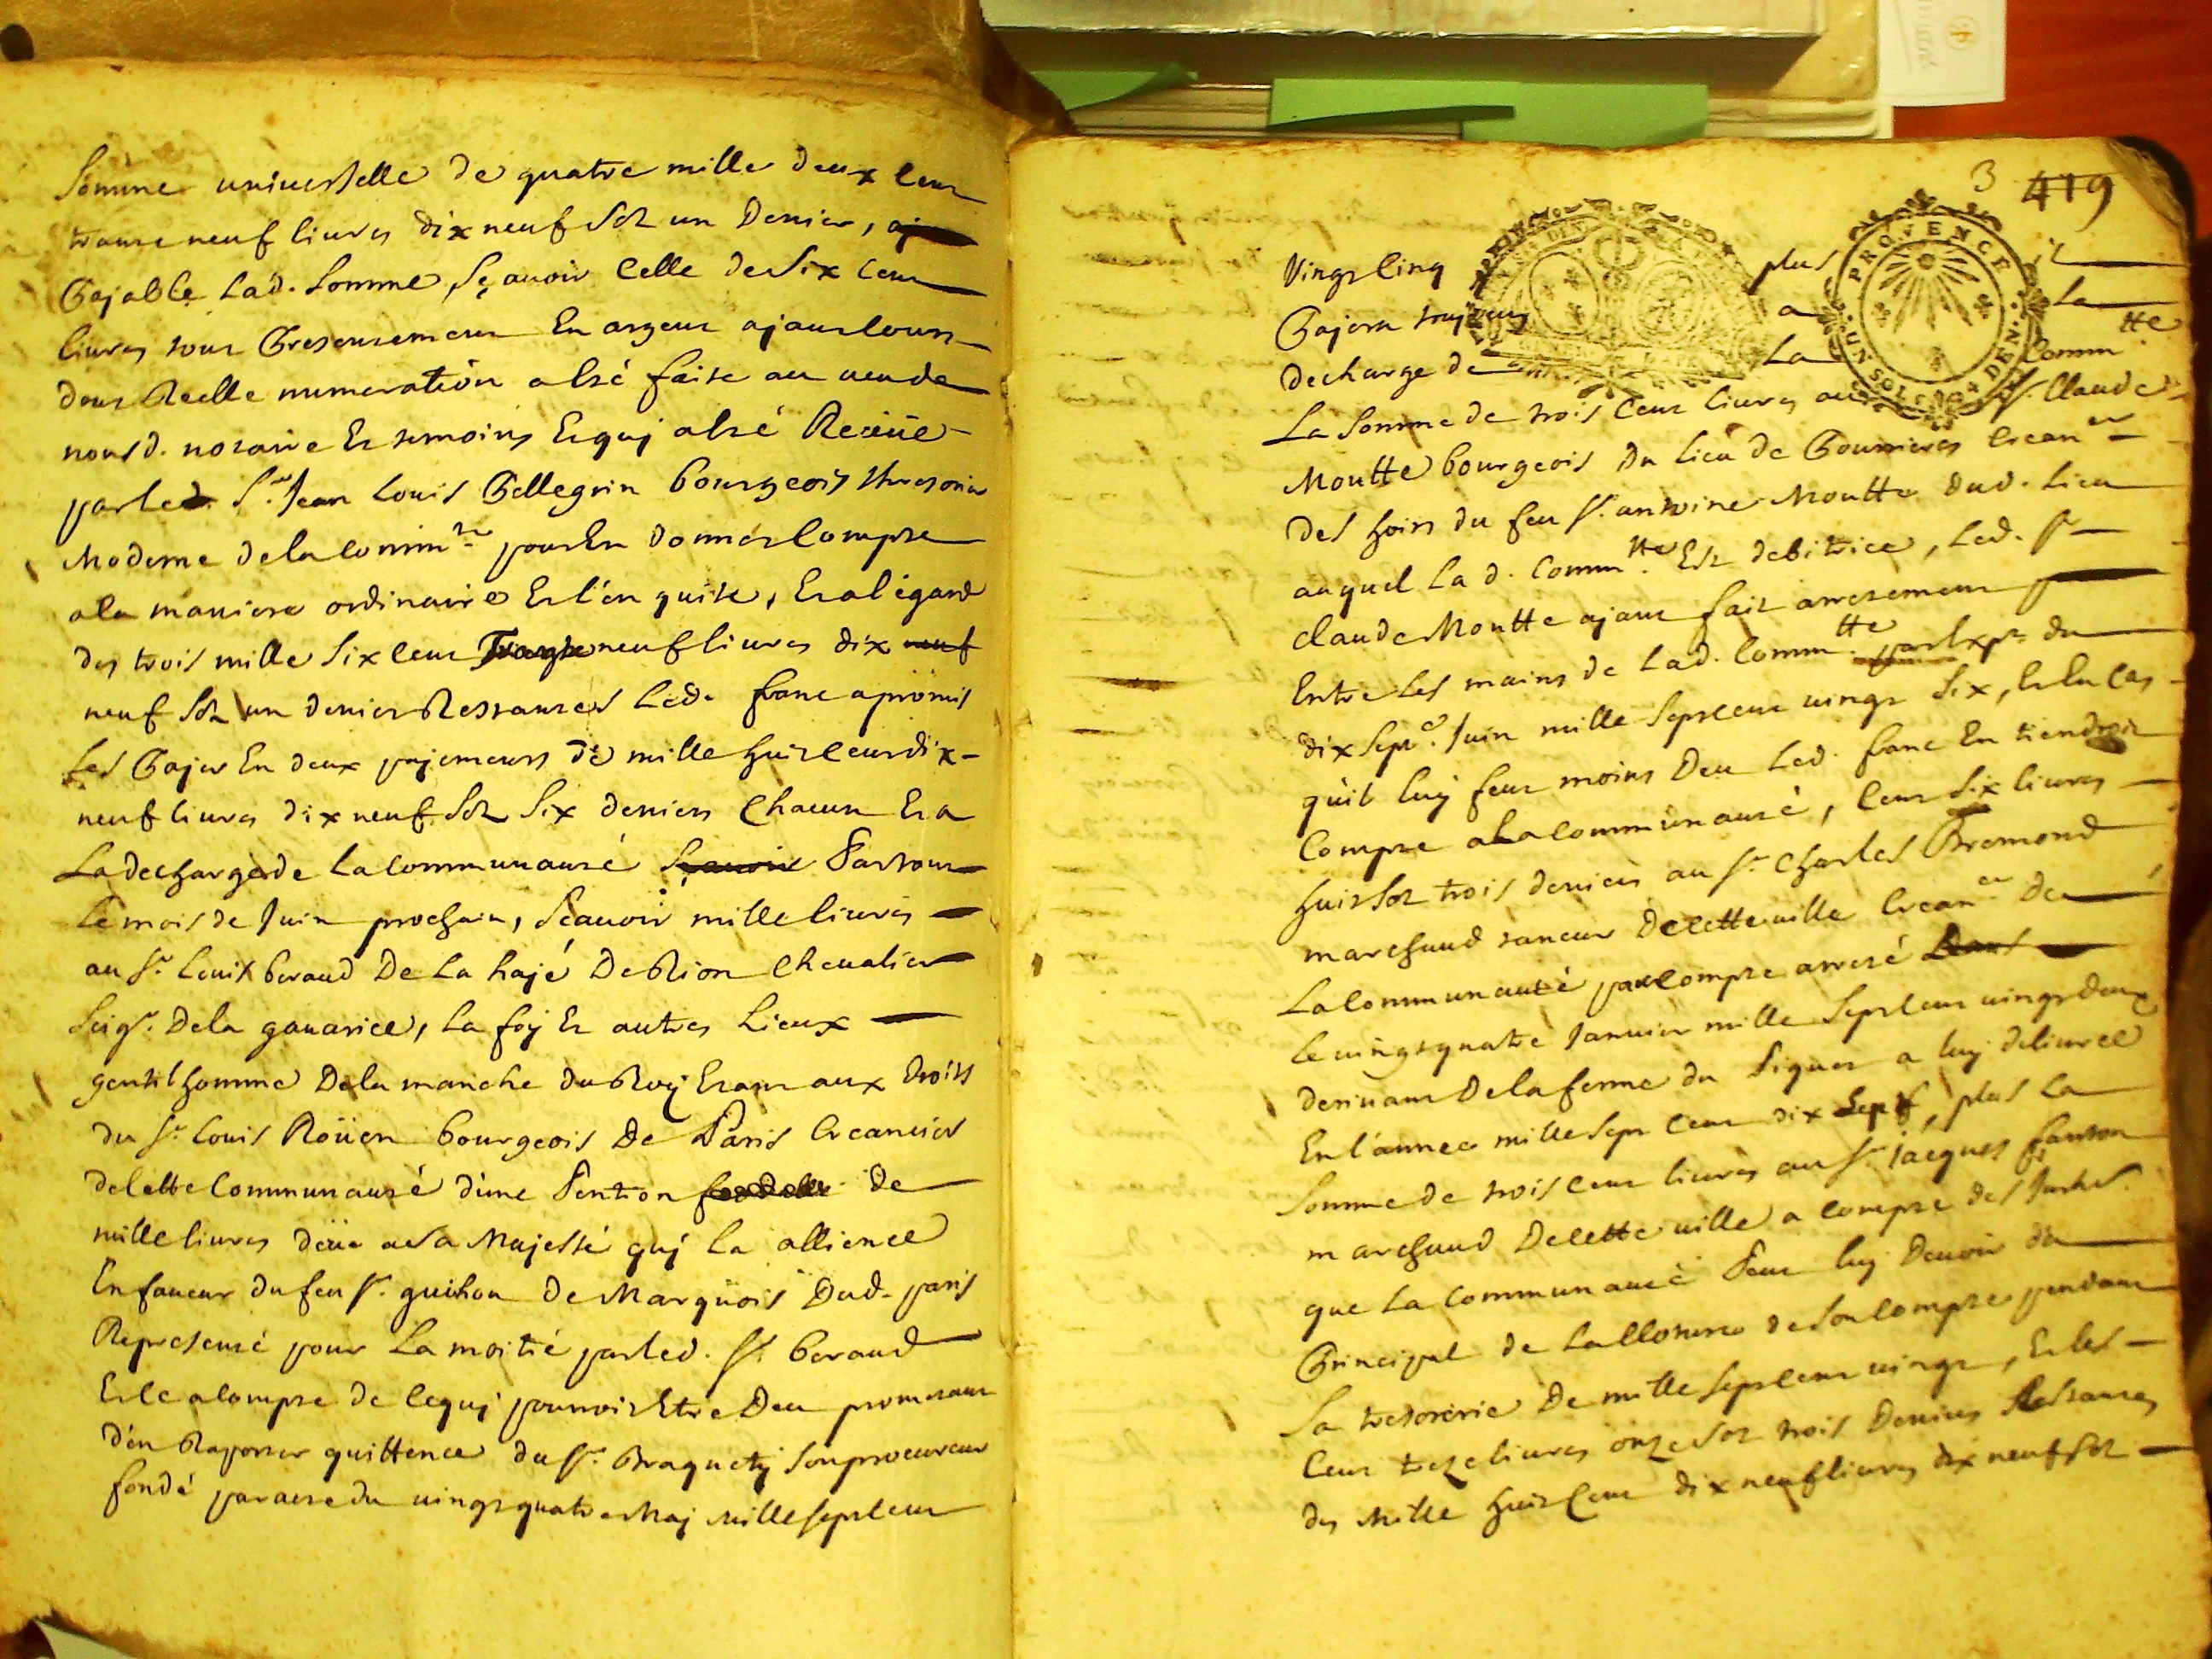 Somme universelle de quatre mille deux cent
trante neuf livres dix neuf sol un denier,
payable lad. somme, sçavoir celle de six cent
livres tout presentement en argent ajant cours
dont reelle numeration a esté faite au veu de
nous d. notaire et temoins et quj a esté receüe
par led. Sr. Jean Louis Pellegrin bourgeois thresorier
moderne de la commté pour en donner compte
a la maniere ordinaire et l'en quitte, et a l'égard
des trois mille six cent trante neuf livres dix neuf
neuf sol un denier restantes led. franc a promis
les pajer en deux pajements de mille huit cent dix
neuf livres dix neuf sol six deniers chacun et a
la decharge de la communauté sçavoir partout
le mois de Juin prochain, scavoir mille livres
au Sr. Louis beraud de la haje de Rion chevalier
Seigr. de la gavarice, la foj et autres lieux
gentilhomme de la manche du Roy etant aux droits
du Sr. Louis Roüen bourgeois de Paris creancier
de cette communauté d'une pention de
mille livres deüe a sa Majesté quj la allience
en faveur du feu Sr. guihou de Marquois dud. paris
representé pour la moitié par led. Sr. beraud
et ce a compte de ce quj pourroit etre deu promettant
d'en raporter quittence du Sr. Braquety son procureur
fondé par acte du vingt quatre maj mille sept cent
3 419
vingt cinq plus il
PROVENCE
UN SOL 4 DEN.
pajera toujours a la
decharge de la Commtté
la somme de trois cent livres au Sr. Claude
Moutte bourgeois du lieu de Pourrieres creancer
des hoirs du feu Sr. antoine Moutte dud. lieu
auquel la d. Commtté est debitrice, led. Sr
claude Moutte ajant fait arretement
entre les mains de lad. Commtté par expt. du
dix septe. Juin mille sept cent vingt six, et en cas
qu'il luy feut moins deu led. franc en tiendroit
compte a la communauté, cent six livres
huit sol trois deniers au Sr. Charles Bremond
marchand taneur de cette ville creancer de
la communauté par compte arresé dans
le vingt quatre Janvier mille sept cent vingt deux
derivant de la ferme du piquet a luy delivrée
en l'année mille sept cent dix sept, plus la
somme de trois cent livres au Sr. jacques fanton
marchand de cette ville a compte des
que la communauté peut luy devoir du
principal de la cloture de son compte pendant
sa tresorerie de mille sept cent vingt, et les
cent treze livres onze sol trois deniers restantes
des mille huit cent dix neuf livres dix neuf sol